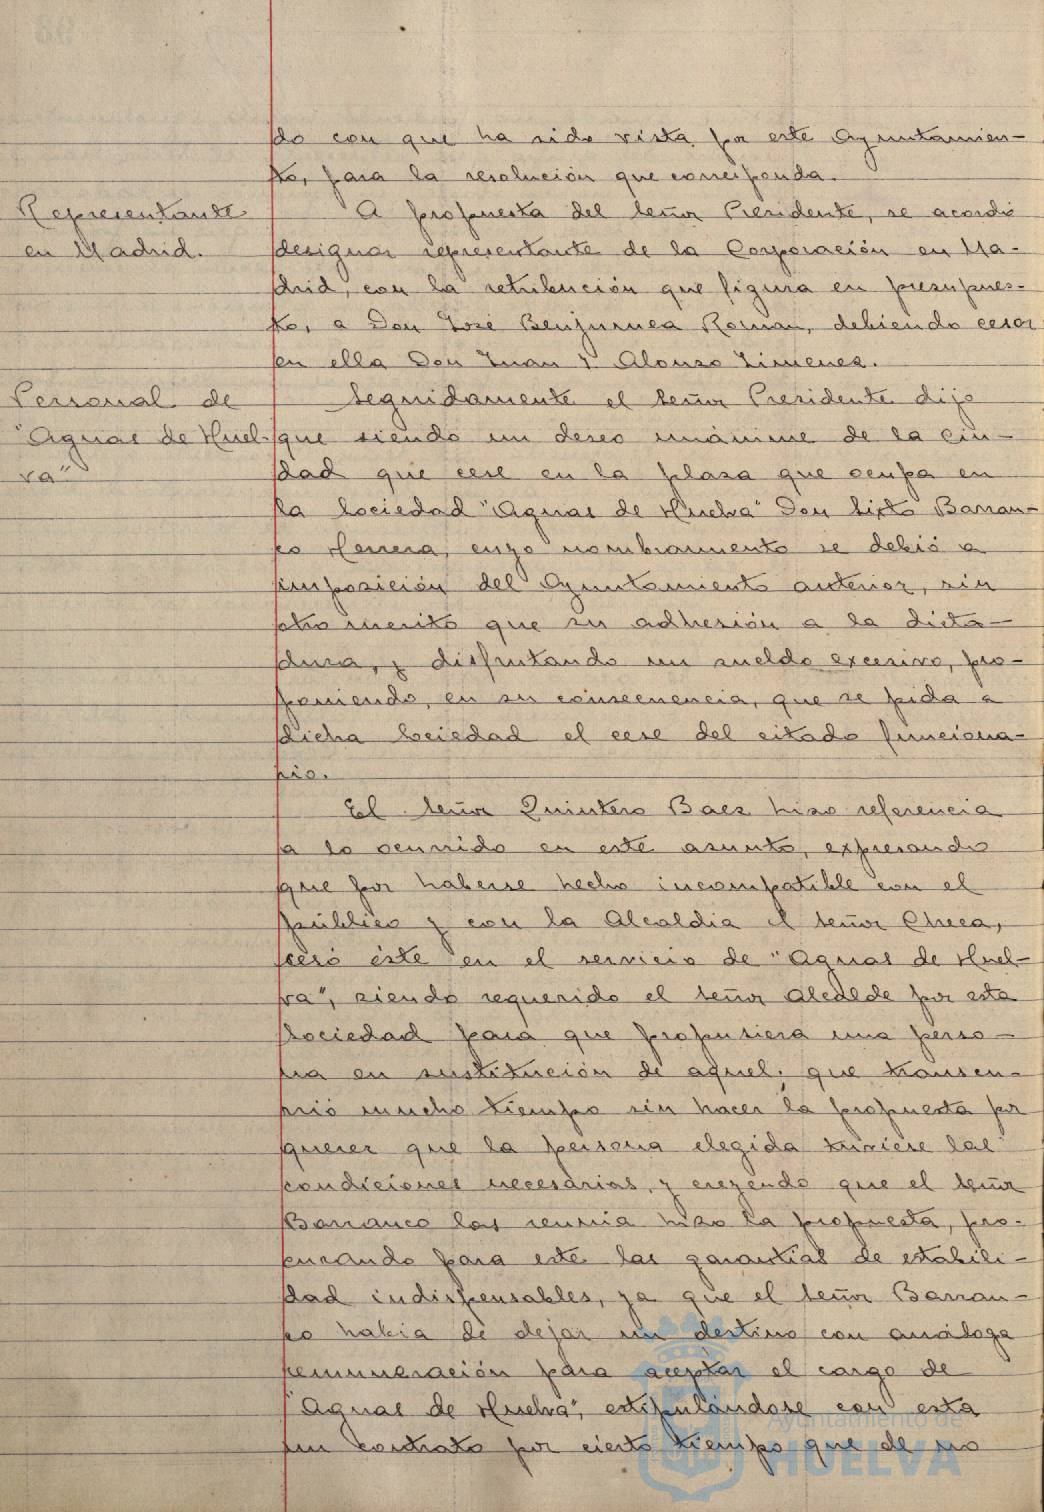 do con que ha sido vista por este Ayuntamien-
to, para la resolución que corresponda.
Representante
en Madrid.
A propuesta del Señor Presidente, se acordó
designar representante de la Corporación en Ma-
drid, con la retribución que figura en presupues-
to, a Don José Benjumea Roman, debiendo cesar
en ella Don Juan Alonso Jimenez.
Personal de
"Aguas de Huel-
va"
Seguidamente el Señor Presidente dijo
que siendo un deseo unánime de la ciu-
dad que cese en la plaza que ocupa en
la Sociedad "Aguas de Huelva" Don Sixto Barran-
co Herrera, cuyo nombramiento se debió a
imposición del Ayuntamiento anterior, sin
otro merito que su adhesión a la dicta-
dura, y disfrutando un sueldo excesivo, pro-
poniendo, en su consecuencia, que se pida a
dicha Sociedad el cese del citado funciona-
rio.
El Señor Quintero Baez hizo referencia
a lo ocurrido en este asunto, expresando
que por haberse hecho incompatible con el
público y con la Alcaldia el Señor Checa,
cesó éste en el servicio de "Aguas de Huel-
va", siendo requerido el Señor Alcalde por esta
Sociedad para que propusiera una perso-
na en sustitución de aquel; que transcu-
rrió mucho tiempo sin hacer la propuesta por
querer que la persona elegida tuviese las
condiciones necesarias, y creyendo que el Señor
Barranco las reunia hizo la propuesta, pro-
curando para este las garantias de estabili-
dad indispensables, ya que el Señor Barran-
co habia de dejar un destino con análoga
remuneración para aceptar el cargo de
"Aguas de Huelva", estipulándose con esta
un contrato por cierto tiempo que de no
Ayuntamiento de
HUELVA